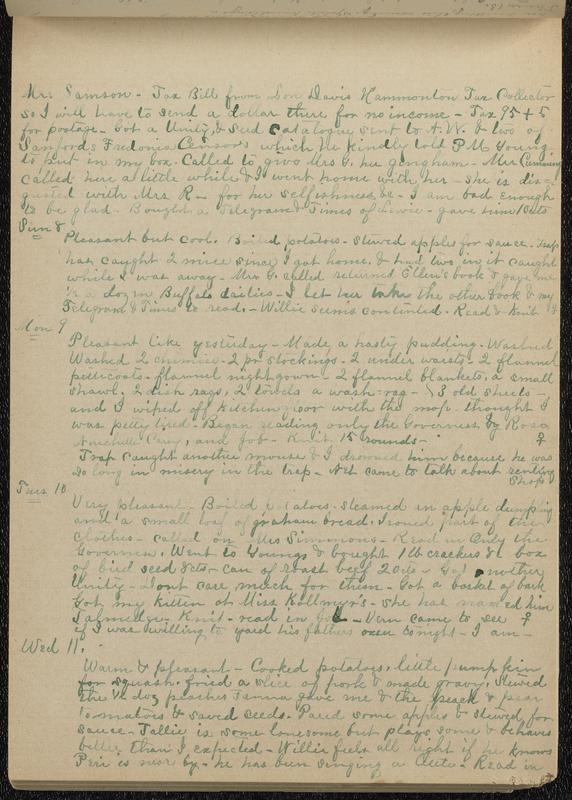 Mrs. Samson - Tax Bill from Lon Davis Hammonton Tax Collector
so I will have to send a dollar there for no income - Tax 95 + 5
for postage - Got a Unity, & Seed Catalogue sent to A.W. & two of
Sanfords Fredonia Censors which he kindly told P.M. Young
to put in my box. Called to give Mrs G. her gingham - Mrs Cumming
called here a little while & I went home with her - she is dis=
gusted with Mrs R - for her selfishness &c - I am bad enough
to be glad - Bought a Telegram & Times of Lewie - gave him 10cts
Sun 8
Pleasant but cool. Boiled potatoes - stewed apples for sauce - Trap
has caught 2 mice since I got home, & had two in it caught
while I was away - Mrs G. called returned Ellen's book & gave me
½ a dozen Buffalo dailies - I let her take the other book & my
Telegram & Times to read. - Willie seems contented. Read & Knit
Mon 9
Pleasant like yesterday - Made a hasty pudding. Washed
Washed 2 chemise - 2 pr stockings - 2 under waists - 2 flannel
petticoats - flannel nightgown - 2 flannel blankets, a small
shawl, 2 dish rags, 2 towels a wash-rag - 3 old sheets -
and I wiped off kitchen floor with the mop. thought I
was petty tired - Began reading only the Governess, by Rosa
Nouchette Carey, and Job - Knit 15 rounds -
Trap caught another mouse & I drowned him because he was
so long in misery in the trap - Net came to talk about renting
Shop
Tues 10
Very pleasant - Boiled potatoes. steamed an apple dumpling
and a small loaf of graham bread. Ironed part of the
clothes - called on Mrs Simmons - Read in Only the
Governess. Went to Youngs & bought 1 lb crackers 8c box
of bird seed 8cts - can of roast beef 20cts - Got another
Unity - Dont care much for them - Got a basket of bark
Got my kitten at Miss Kollmyr's - she has named him
Talmedge - Knit - read in Job - Vern came to see
if I was willing to yard his fathers oxen tonight - I am -
Wed 11.
Warm & pleasant - Cooked potatoes, little pumpkin
for squash. fried a slice of pork & made gravy. Stewed
the ½ doz peaches gave me & the peach & pear
tomatoes & saved seeds. Pared some apples & stewed for
sauce - Tallie is some lonesome but plays some & behaves
better than I expected - Willie feels all right if he knows
Peri is near by - he has been singing a lute - Read in